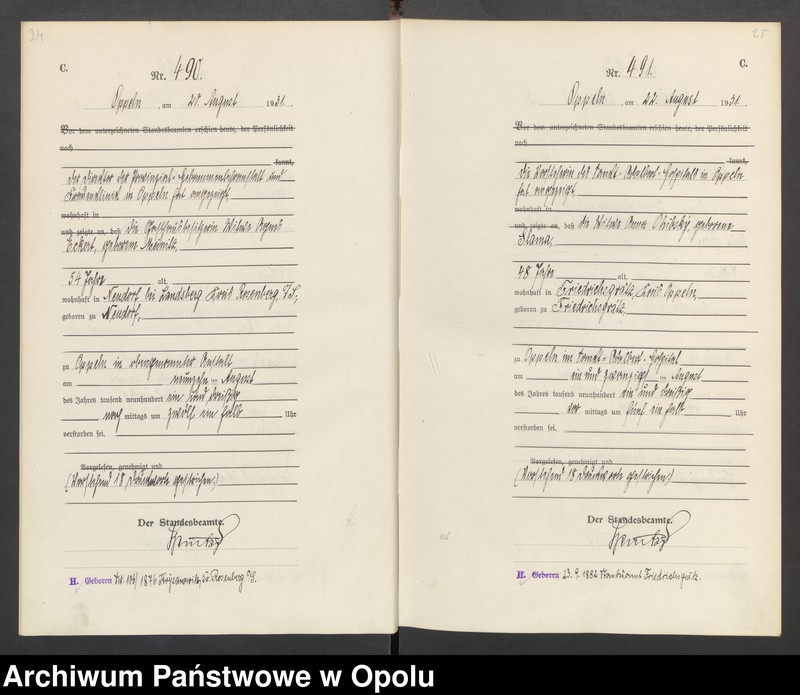 24
C.
Nr. 490.
Oppeln, am 20. August 1931.
Vor dem unterzeichneten Standesbeamten erschien heute, der Persönlichkeit
nach
kannt,
der Direktor der Provinzial-Hebammenlehranstalt und
Frauenklinik in Oppeln hat angezeigt,
wohnhaft in
und zeigte an, daß die Witwe Agnes
Eckert, geborene
54 Jahre alt,
wohnhaft in Neudorf bei Landsberg Kreis Rosenberg O/S,
geboren zu Neudorf,
zu Oppeln in obengenannter Anstalt
am neunzehn ten August
des Jahres tausend neunhundert ein und dreißig
nach mittags um zwölf ein halb Uhr
verstorben sei.
Vorgelesen, genehmigt und
(Vorstehend 18 Druckworte gestrichen.)
Der Standesbeamte.
H. Geboren Nr. 1876 Rosenberg O/S.
25
C.
Nr. 491.
Oppeln, am 22. August 1931.
Vor dem unterzeichneten Standesbeamten erschien heute, der Persönlichkeit
nach
kannt,
die Vorsteherin des Sankt-Adalbert-Hospitals in Oppeln
hat angezeigt,
wohnhaft in
und zeigte an, daß die Witwe Anna geborene
Slama,
48 Jahre alt,
wohnhaft in Friedrichsgrätz, Kreis Oppeln,
geboren zu Friedrichsgrätz,
zu Oppeln im Sankt-Adalbert-Hospital
am ein und zwanzigsten August
des Jahres tausend neunhundert ein und dreißig
vor mittags um fünf ein halb Uhr
verstorben sei.
Vorgelesen, genehmigt und
(Vorstehend 18 Druckworte gestrichen.)
Der Standesbeamte.
H. Geboren 23. 9. 1882 Standesamt Friedrichsgrätz.
Archiwum Państwowe w Opolu